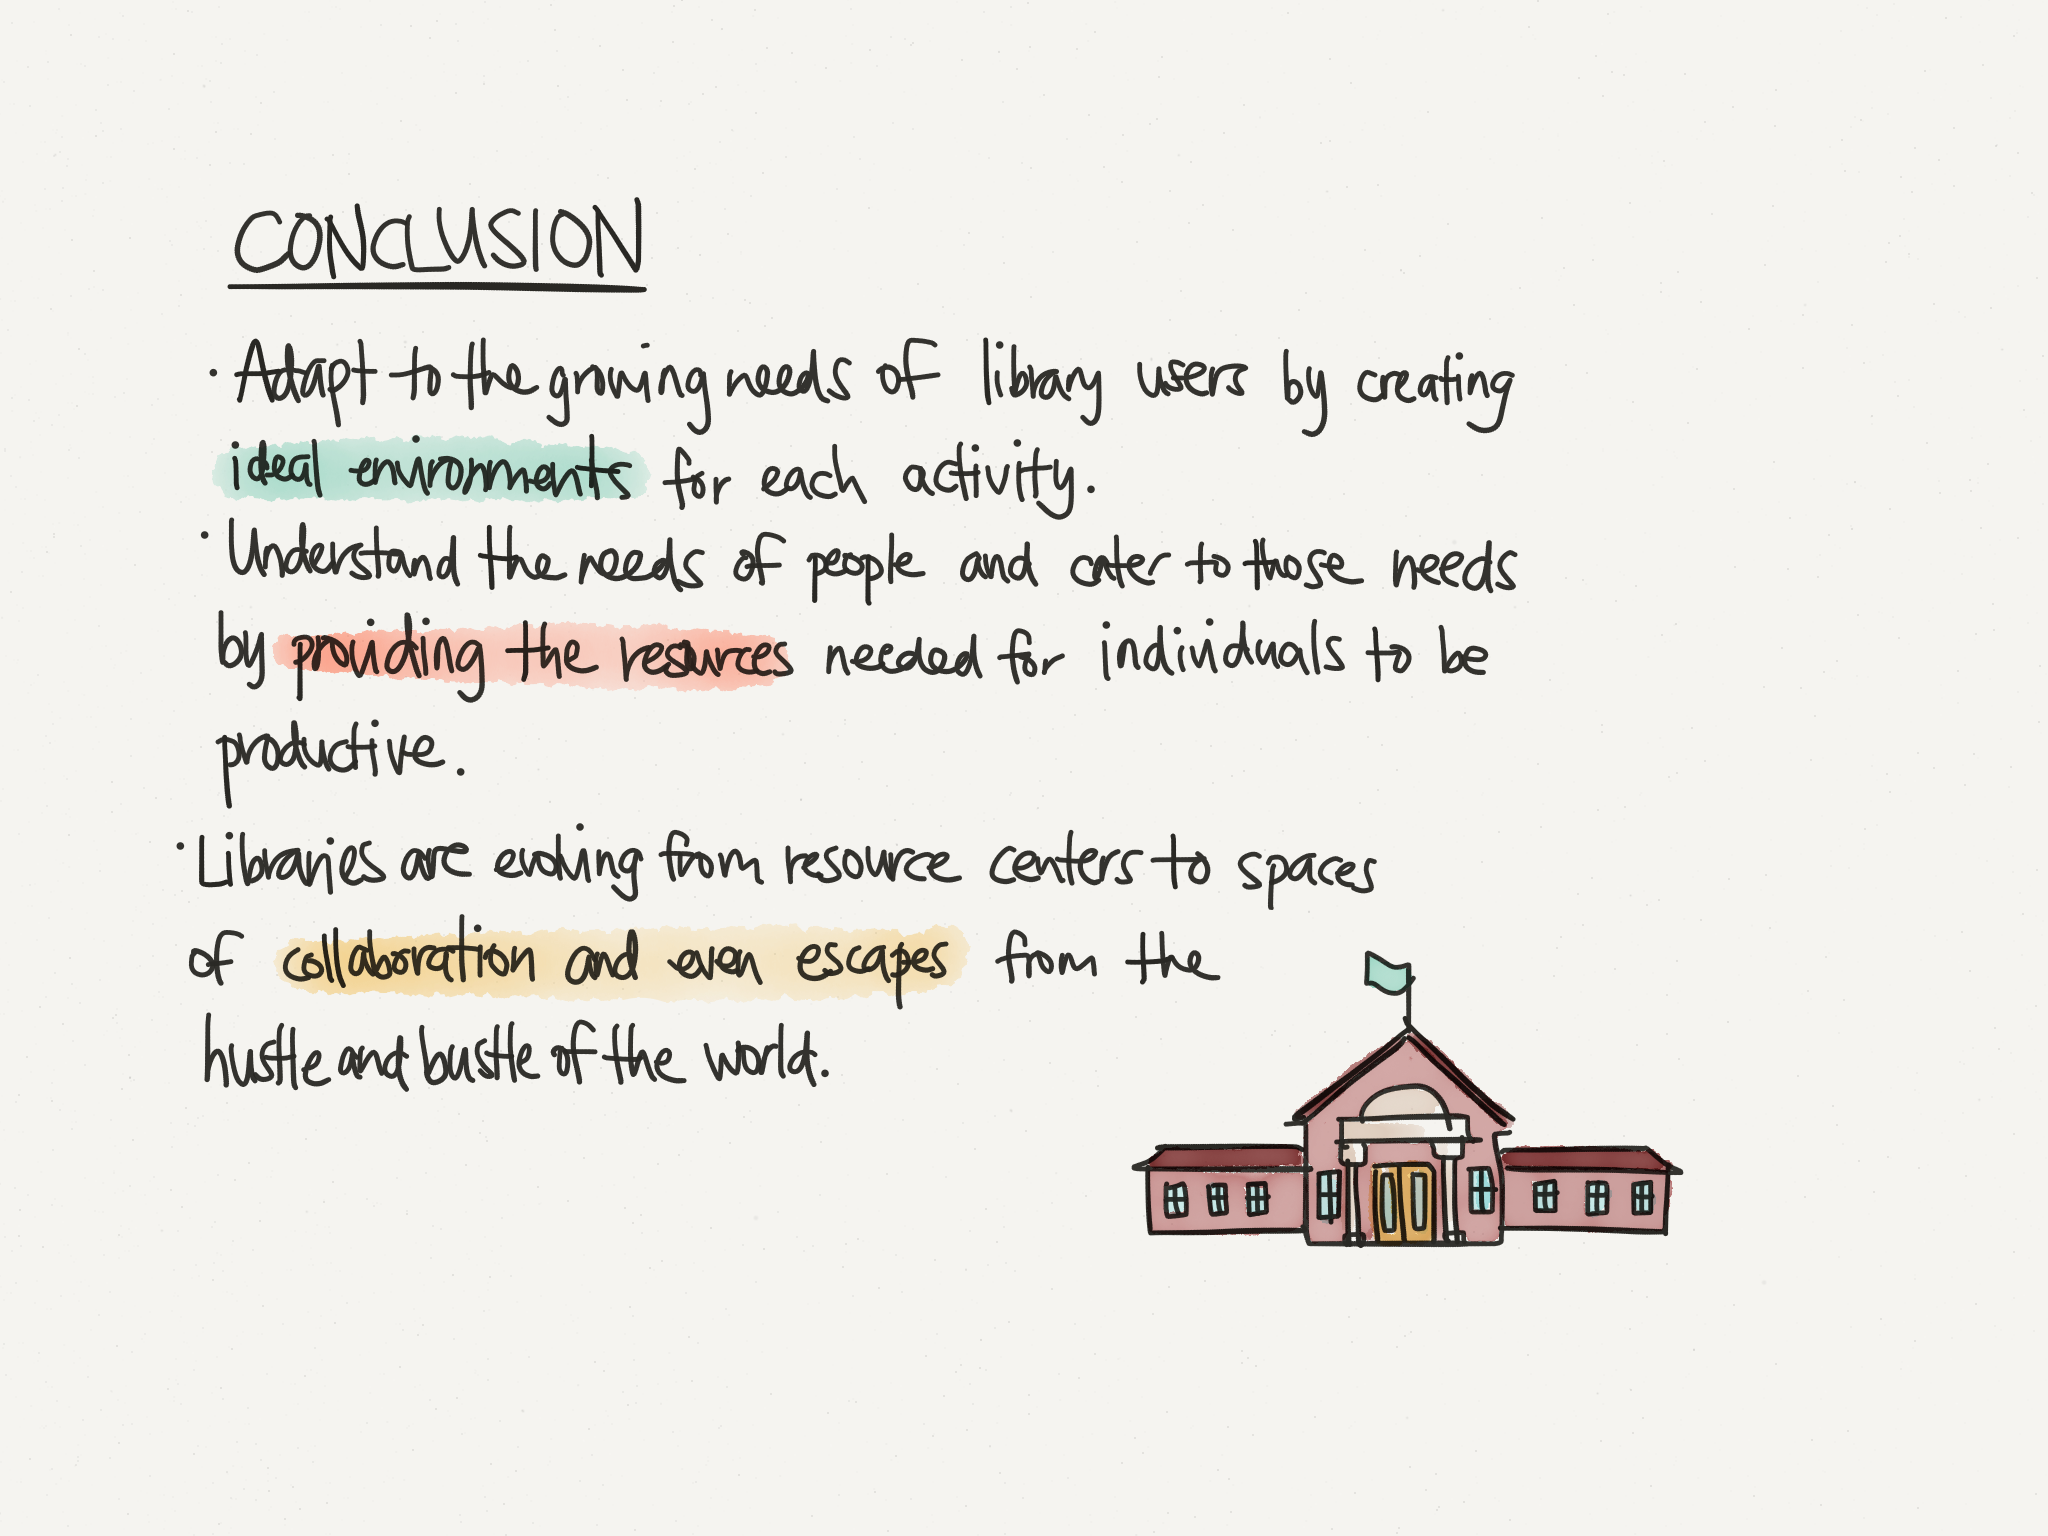 CONCLUSION
· Adapt to the growing needs of library users by creating
ideal environments for each activity.
· Understand the needs of people and cater to those needs
by providing the resources needed for individuals to be
productive.
· Libraries are evolving from resource centers to spaces
of collaboration and even escapes from the
hustle and bustle of the world.